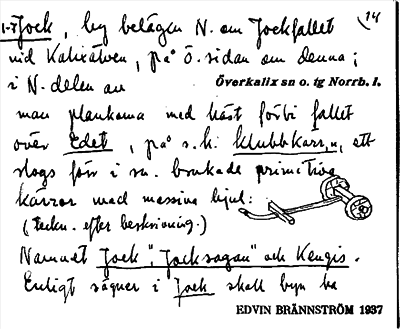 1-7 Jock, by belägen N. om Jockfallet 14
vid Kalixälven, på ö. sidan om denna;
i N-delen av
Överkalix sn o. tg Norrb. l.
man plankorna med häst förbi fallet
över Edet, på s.k. klubbkärror, ett
slags förr i sn. brukade primitiva
kärror med massiva hjul:
(teckn. efter beskrivning.)
Namnet Jock", Jocksagan" och Kengis.
Enligt sägner i Jock skall byn ha
EDVIN BRÄNNSTRÖM 1937